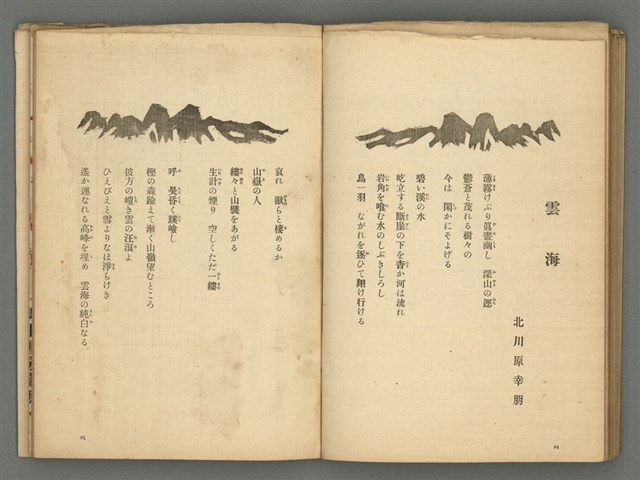 雲海
北川原幸朋
薄霧けぶり眞晝幽し 深山の逕
鬱蒼と茂れる樹々の
今は 閑かにそよげる
碧い溪の水
屹立する斷崖の下を杳か河は流れ
岩角を喰む水のしぶきしろし
鳥一羽 ながれを逐ひて翔け行ける
24
哀れ 獣らと棲めるか
山嶽の人
縷々と山襞をあがる
生計の煙り 空しくただ一縷
呼 昊昏く
樫の森踰えて漸く山嶺望むところ
彼方の雲の汪溟よ
ひえびえと雪よりなほ淨らけき
遙か連なれる高峰を埋め 雲海の純白なる
25